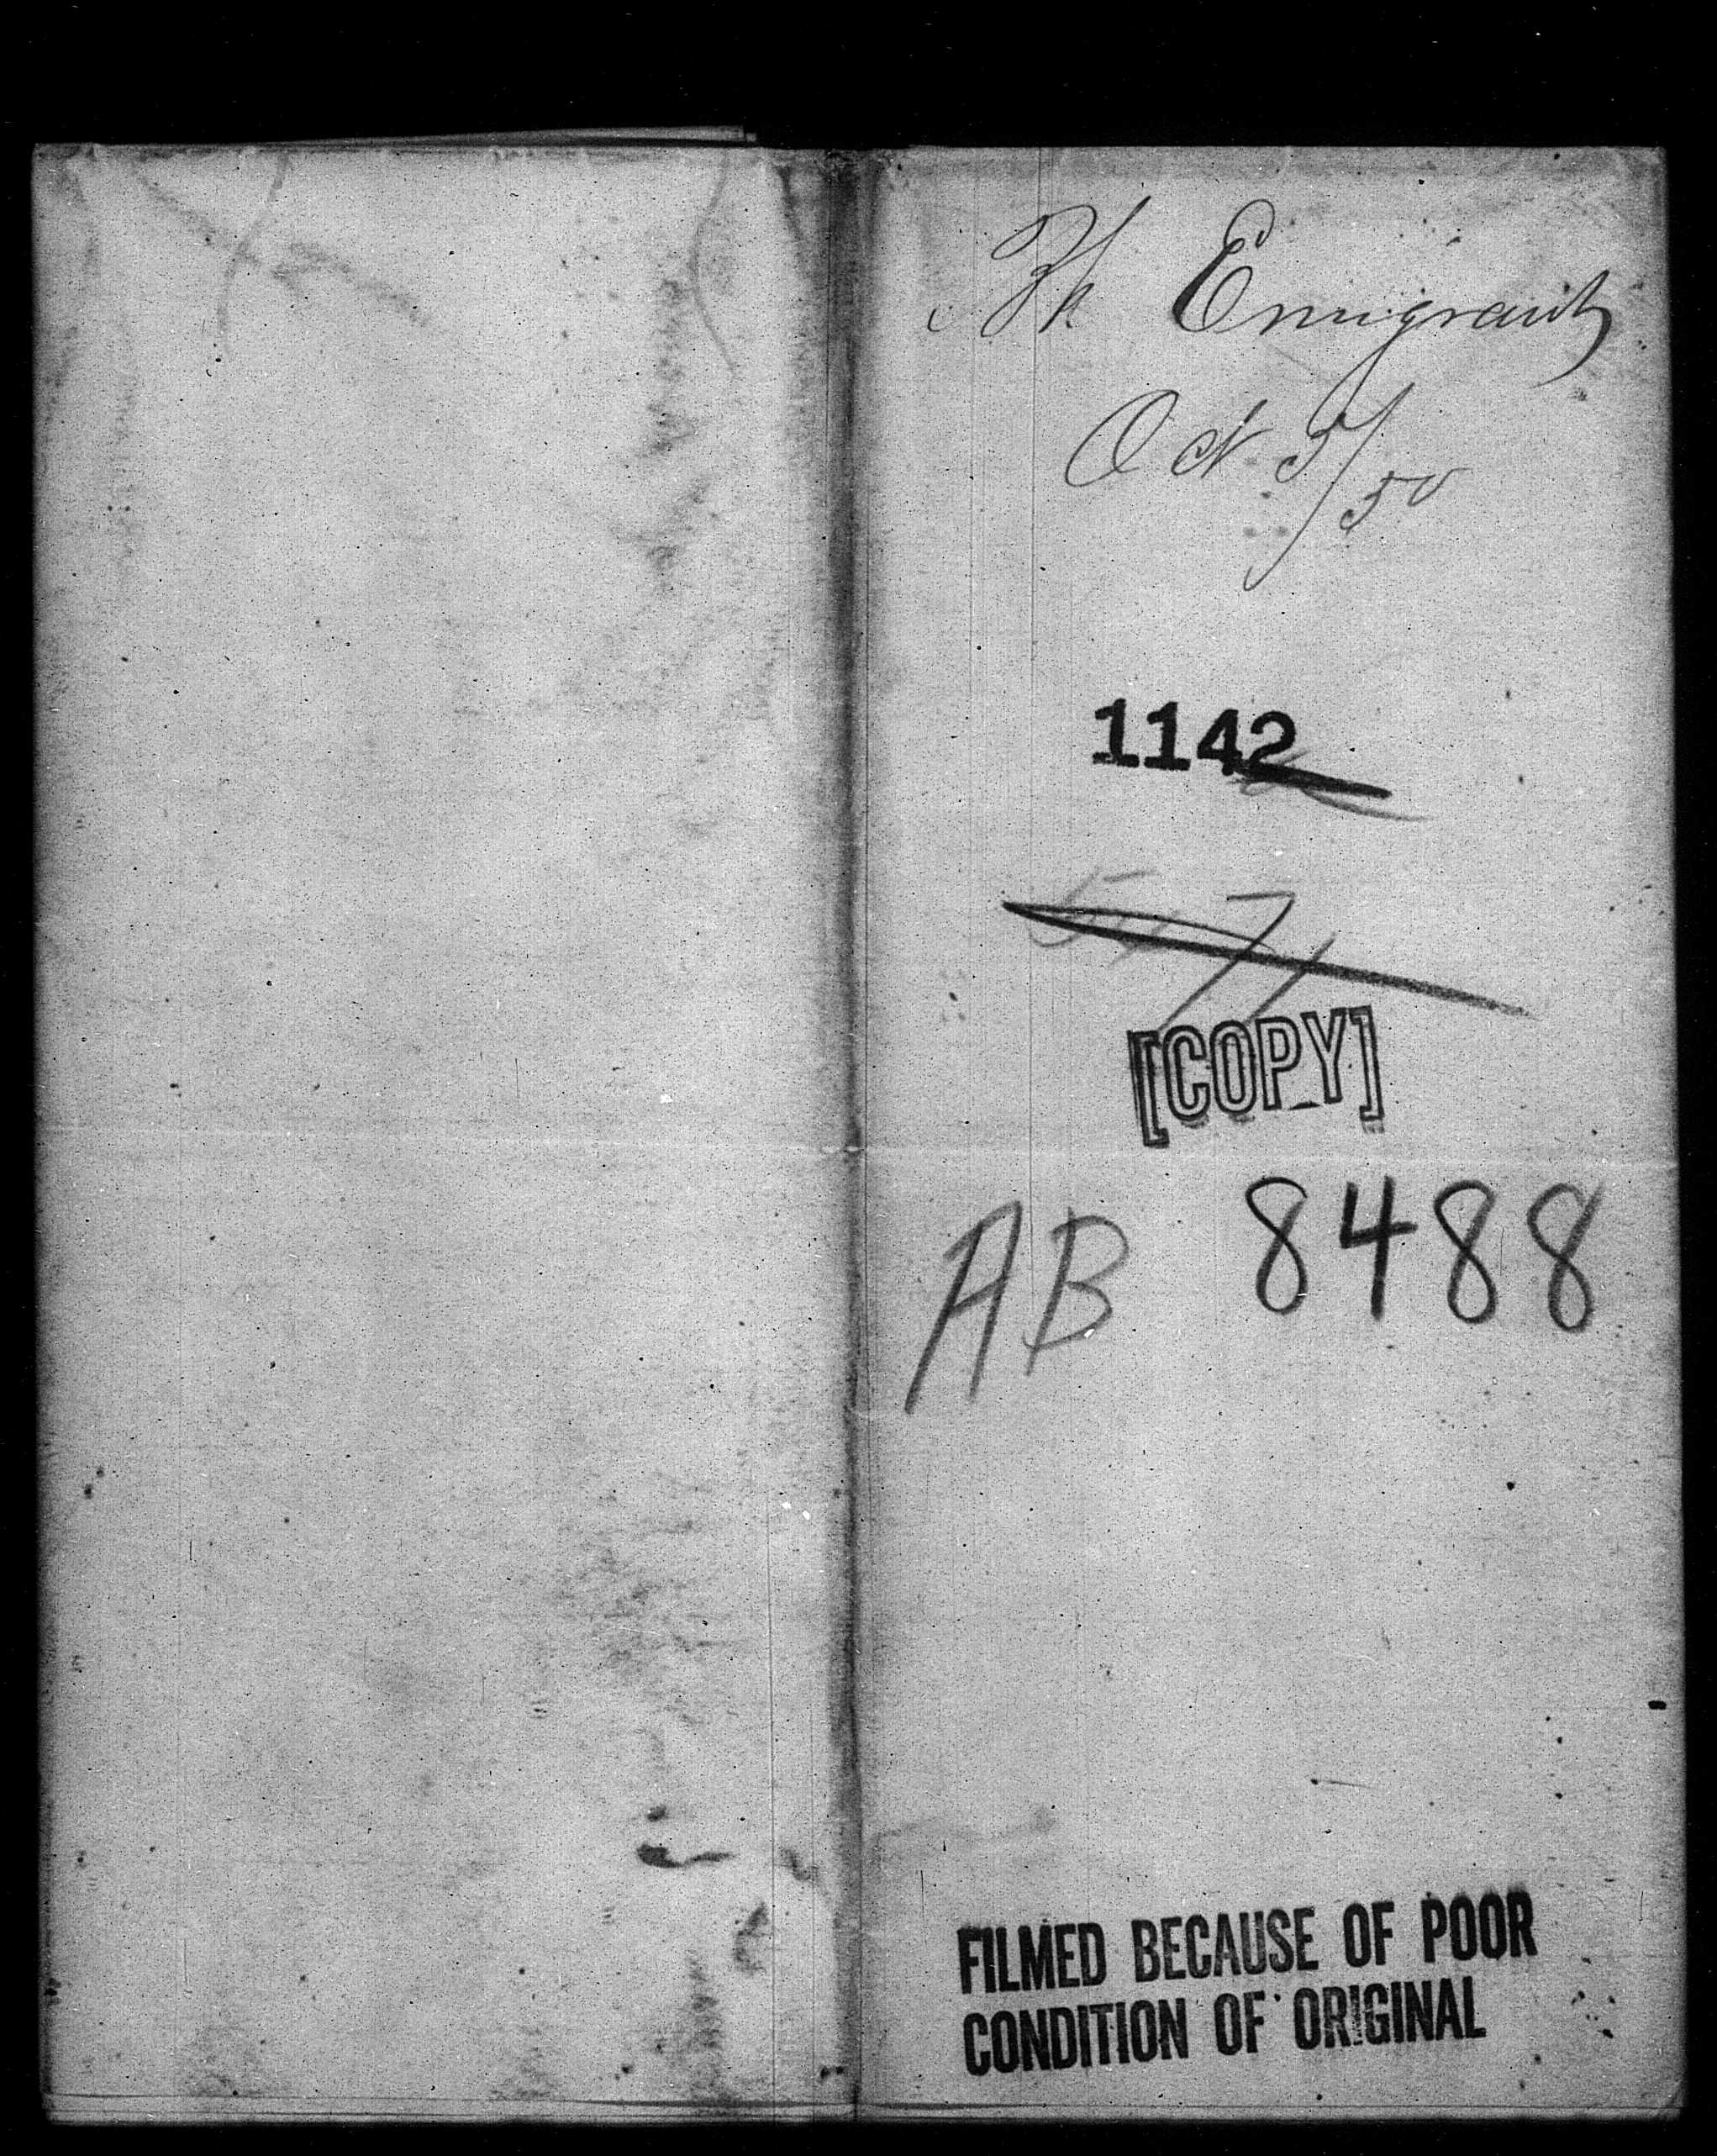 Bk Emigrant
Oct 5/50
1142
[COPY]
AB 8488
FILMED BECAUSE OF POOR
CONDITION OF ORIGINAL